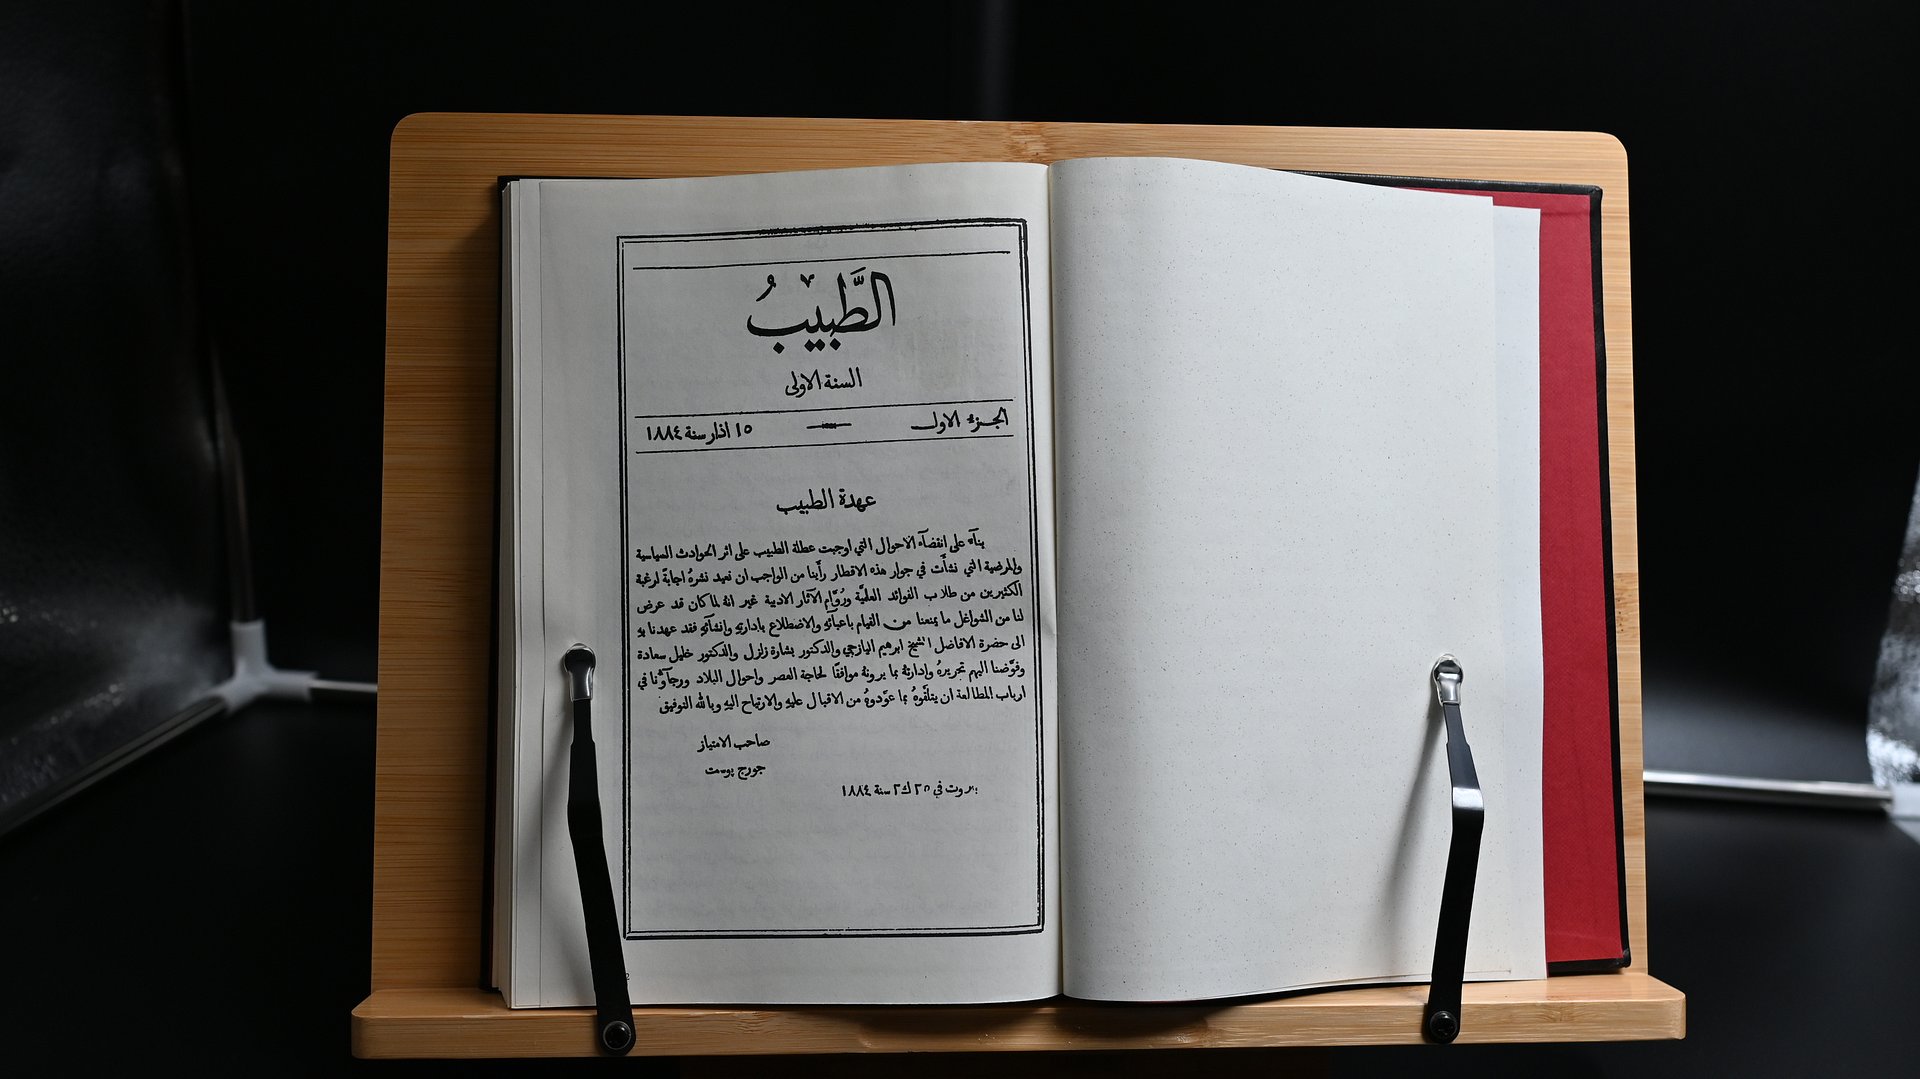 الطَّبيبُ
السنة الاولى
الجزء الاول — ١٥ اذار سنة ١٨٨٤
عهدة الطبيب
بناءً على انقضآء الاحوال التي اوجبت عطلة الطبيب على اثر الحوادث السياسية
والمرضية التي نشأَت في جوار هذه الاقطار رأَينا من الواجب ان نعيد نشرهُ اجابةً لرغبة
الكثيرين من طلاب الفوائد العلميَّة ورُوَّام الآثار الادبية غير انهُ لما كان قد عرض
لنا من الشواغل ما يمنعنا من القيام باعبآئهِ والاضطلاع بادارتهِ وانشآئهِ فقد عهدنا بهِ
الى حضرة الافاضل الشيخ ابرهيم اليازجي والدكتور بشارة زلزل والدكتور خليل سعادة
وفوَّضنا اليهم تحريرهُ وادارتهُ بما يرونهُ موافقًا لحاجة العصر واحوال البلاد ورجآؤُنا في
ارباب المطالعة ان يتلقَّوهُ بما عوَّدوهُ من الاقبال عليهِ والارتياح اليهِ وبالله التوفيق
صاحب الامتياز
جورج بوست
بيروت في ٢٥ ك٢ سنة ١٨٨٤